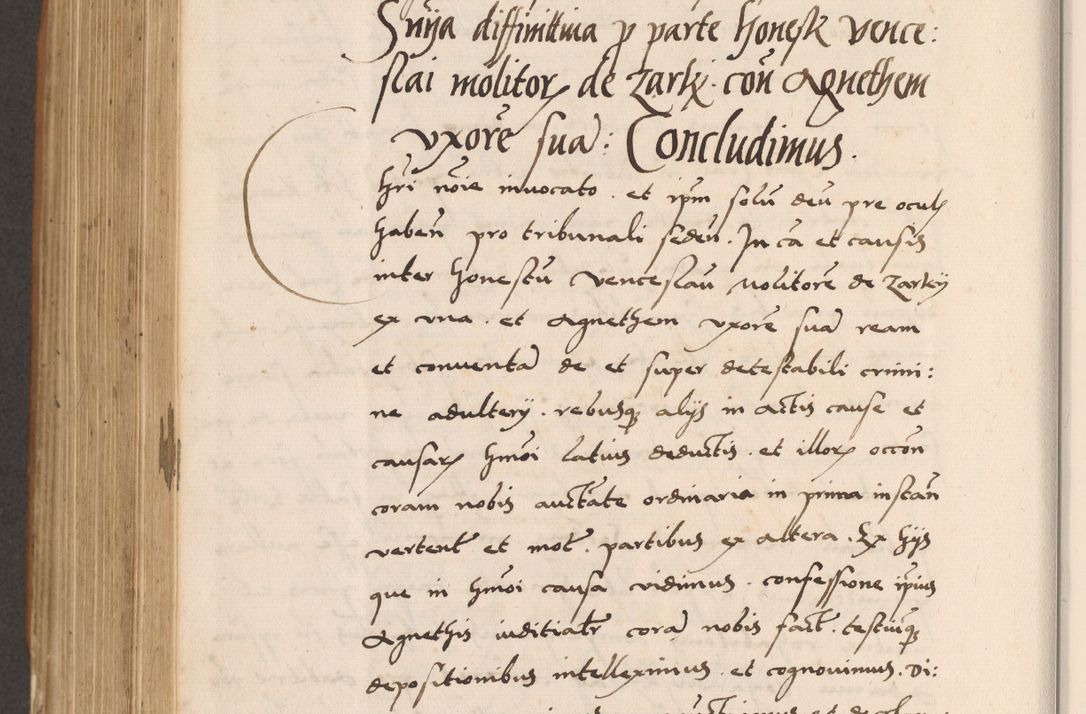 Snīa diffinitiua p parte honestę vence:
slai molitorꝫ de Zarkj. con̄ Agnethem
vxorē suā: Concludimus.
hri̅ no̅ie inuocato. et ip̅m solū deū pre oculꝫ
haben̄ pro tribunali seden̄. In cā et causis
inter honestū venceslau̅ Molitorē de Zarkij
ex vna. et Agnethem vxorē suā ream
et conuentā de et super detestabili crimi:
ne adulterij. rebusqꝫ alijs in actis cause et
causarꝫ hmōi latius deductis. et illorꝫ occōn
coram nobis auctāte ordinaria in prima instan̄
vertent̄ et mot̄. partibus ex altera. Ex hijs
que in hmōi causa vidimus. confessione ip̄ius
Agnethis iuditialr̄ corā nobis fact̄. testiūqꝫ
depositionibus intelleximus. et cognouimus. Di: